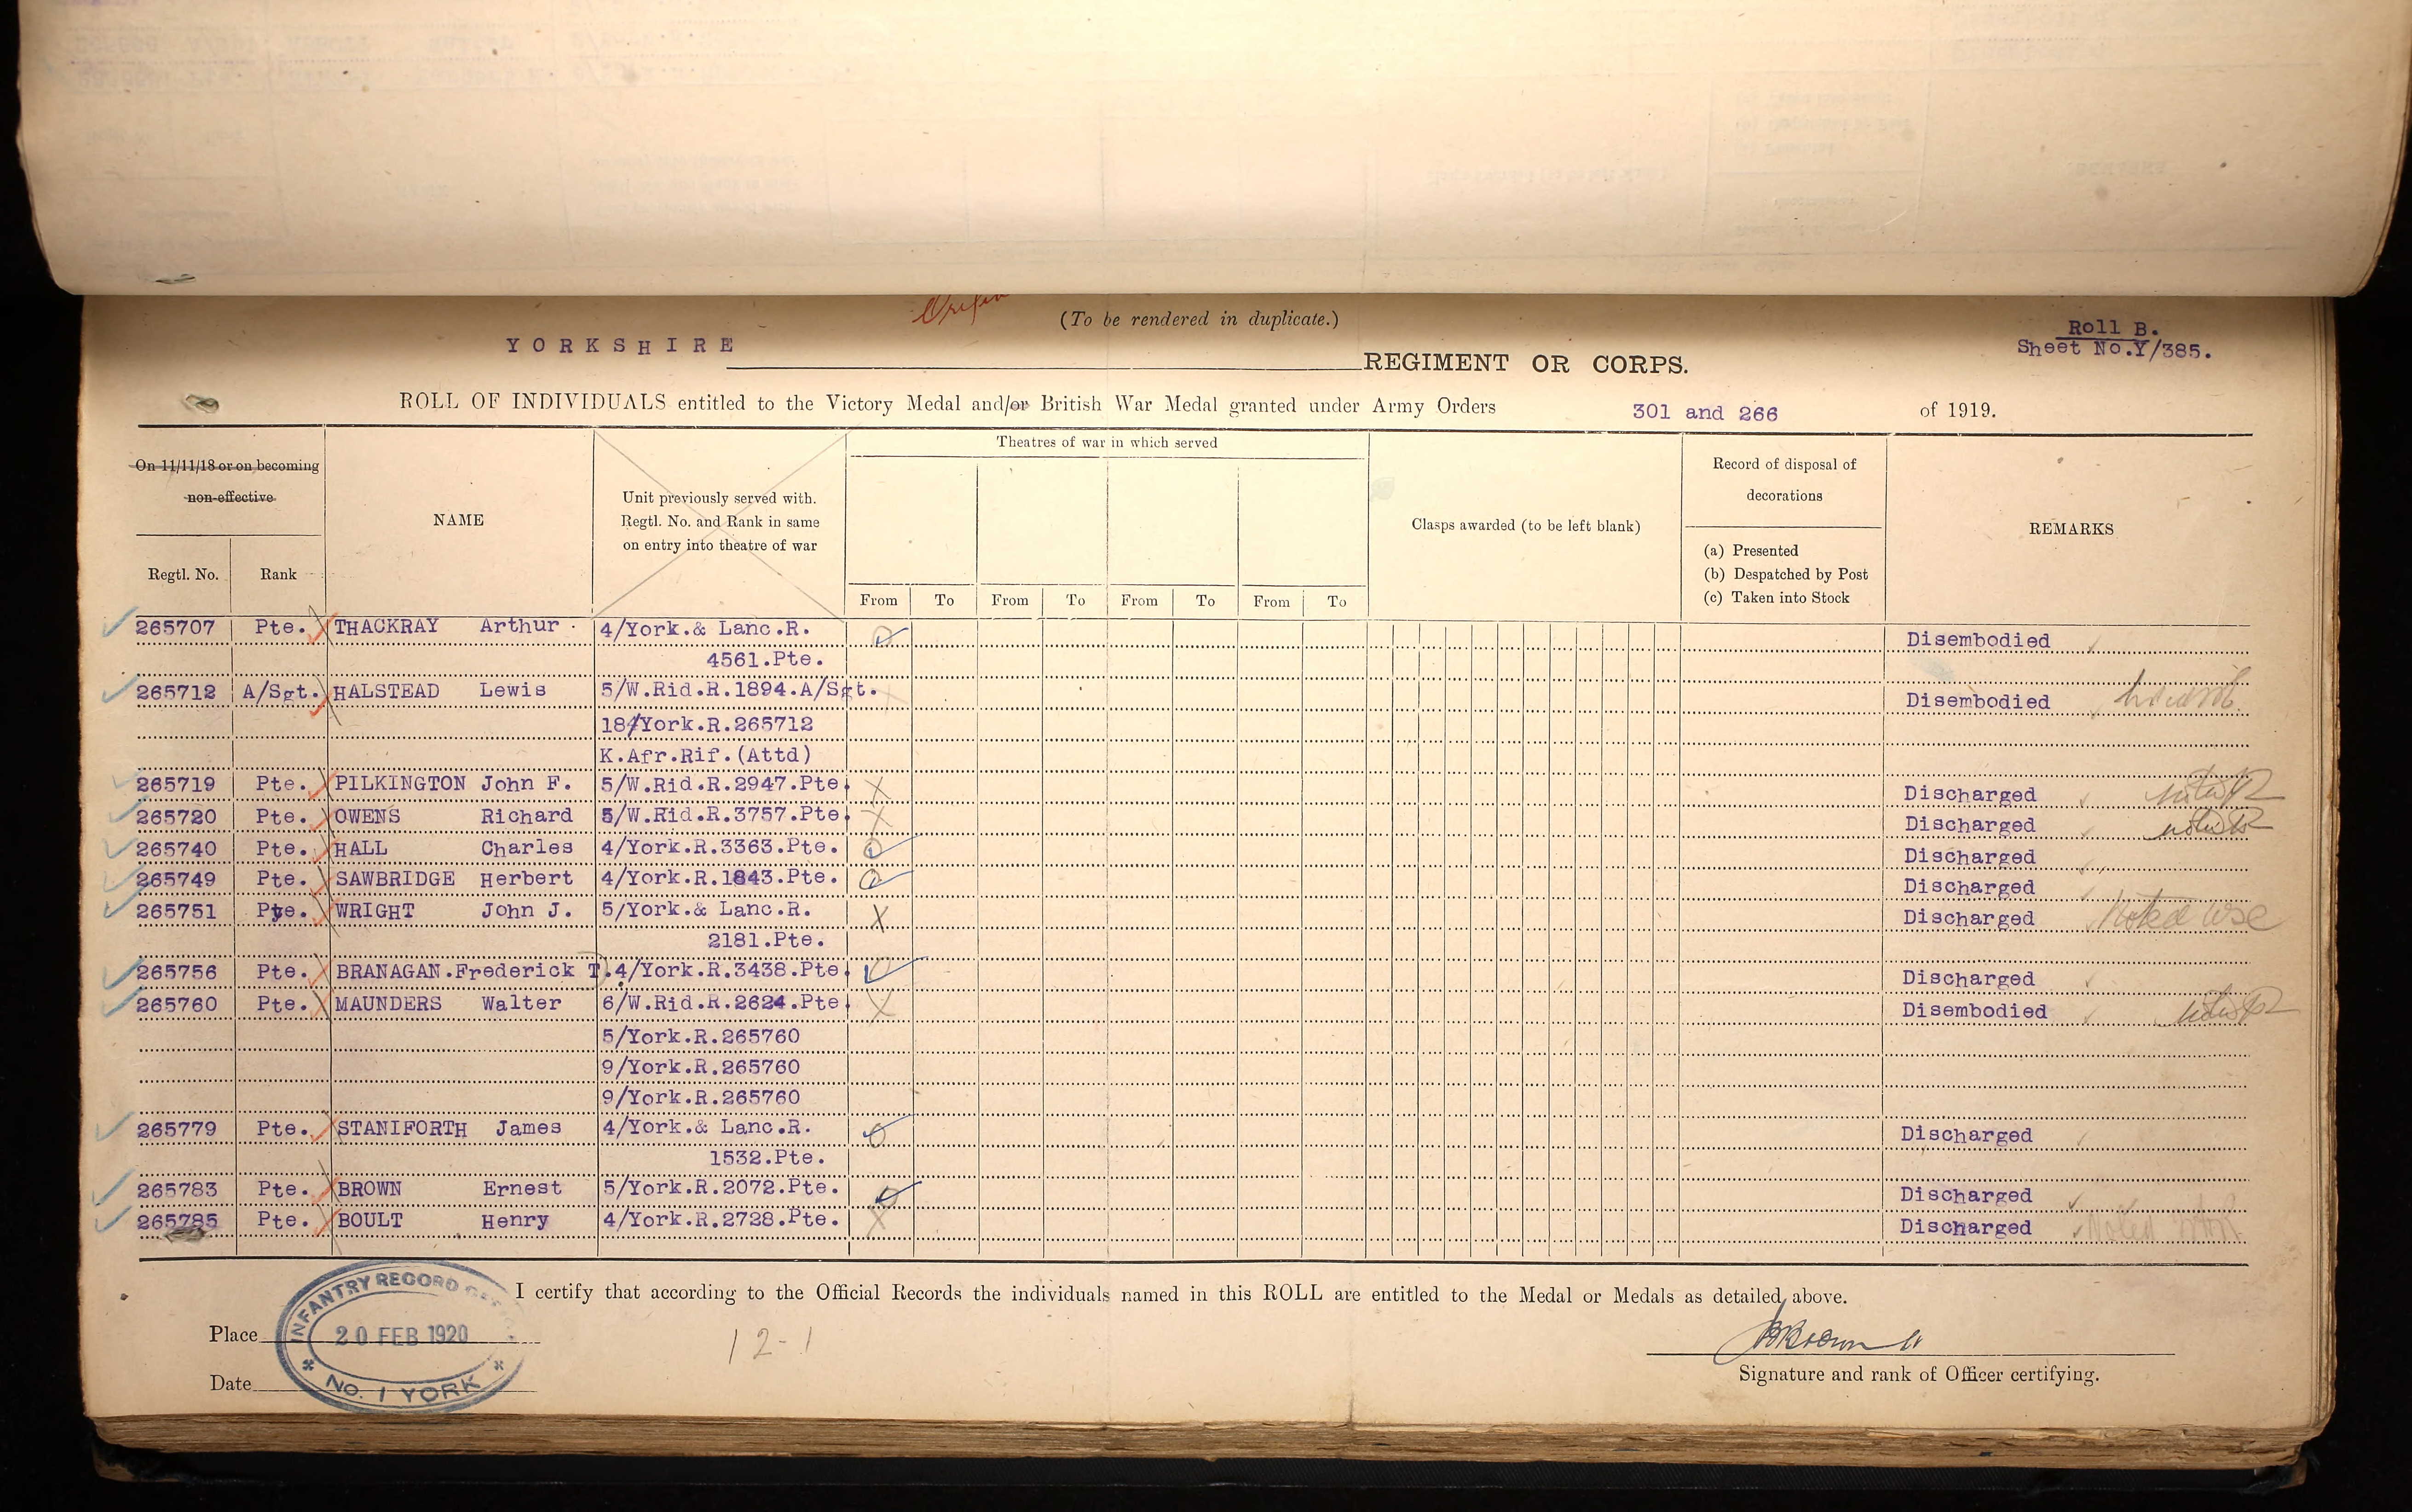 (To be rendered in duplicate.)
Roll B.
YORKSHIRE REGIMENT OR CORPS.
Sheet No.Y/385.
ROLL OF INDIVIDUALS entitled to the Victory Medal and/or British War Medal granted under Army Orders 301 and 266 of 1919.
On 11/11/18 or on becoming
non-effective
Regtl. No.
Rank
NAME
Unit previously served with.
Regtl. No. and Rank in same
on entry into theatre of war
Theatres of war in which served
From To From To From To From To
Clasps awarded (to be left blank)
Record of disposal of
decorations
(a) Presented
(b) Despatched by Post
(c) Taken into Stock
REMARKS
265707 Pte. THACKRAY Arthur 4/York.& Lanc.R. Disembodied
4561.Pte.
265712 A/Sgt. HALSTEAD Lewis 5/W.Rid.R.1894.A/Sgt. Disembodied
18/York.R.265712
K.Afr.Rif.(Attd)
265719 Pte. PILKINGTON John F. 5/W.Rid.R.2947.Pte. Discharged
265720 Pte. OWENS Richard 5/W.Rid.R.3757.Pte. Discharged
265740 Pte. HALL Charles 4/York.R.3363.Pte. Discharged
265749 Pte. SAWBRIDGE Herbert 4/York.R.1843.Pte. Discharged
265751 Pte. WRIGHT John J. 5/York.& Lanc.R. Discharged Noted
2181.Pte.
265756 Pte. BRANAGAN.Frederick T. 4/York.R.3438.Pte. Discharged
265760 Pte. MAUNDERS Walter 6/W.Rid.R.2624.Pte. Disembodied
5/York.R.265760
9/York.R.265760
9/York.R.265760
265779 Pte. STANIFORTH James 4/York.& Lanc.R. Discharged
1532.Pte.
265783 Pte. BROWN Ernest 5/York.R.2072.Pte. Discharged
265785 Pte. BOULT Henry 4/York.R.2728.Pte. Discharged Noted
I certify that according to the Official Records the individuals named in this ROLL are entitled to the Medal or Medals as detailed above.
Place
Date
INFANTRY RECORD
20 FEB 1920
No. 1 YORK
12-1
Signature and rank of Officer certifying.